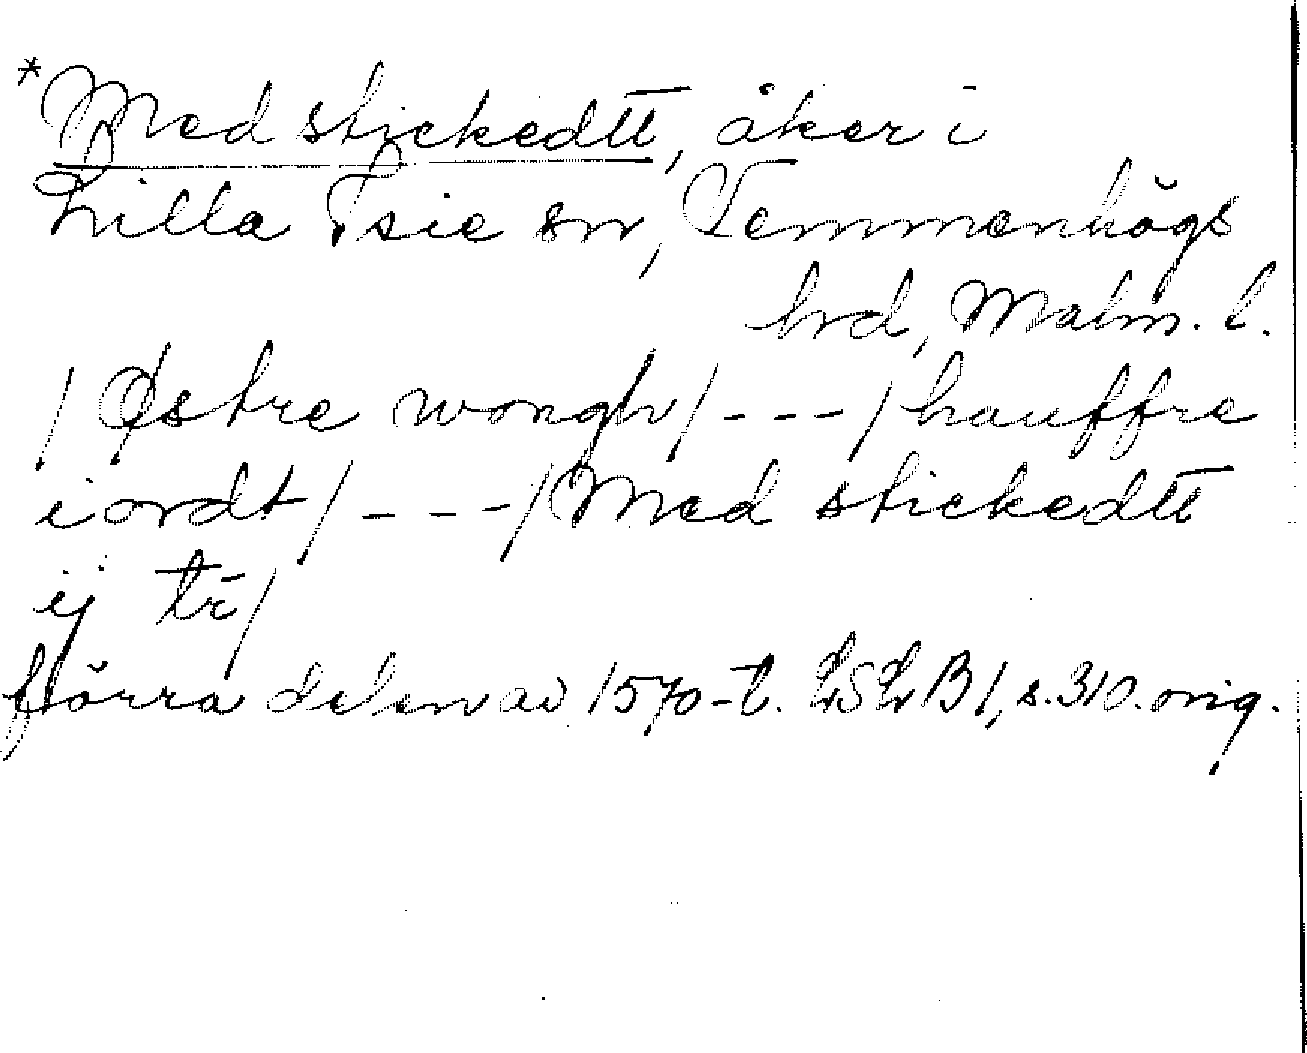 *Med stickedtt, åker i
Lilla Isie sn, Vemmenhögs
hrd, Malm. l.
/ Østre wongh / - - - / hauffre
iordt / - - - / Med stickedtt
ij tr̄ /
förra delen av 1570-t. LSLB1, s. 310. orig.